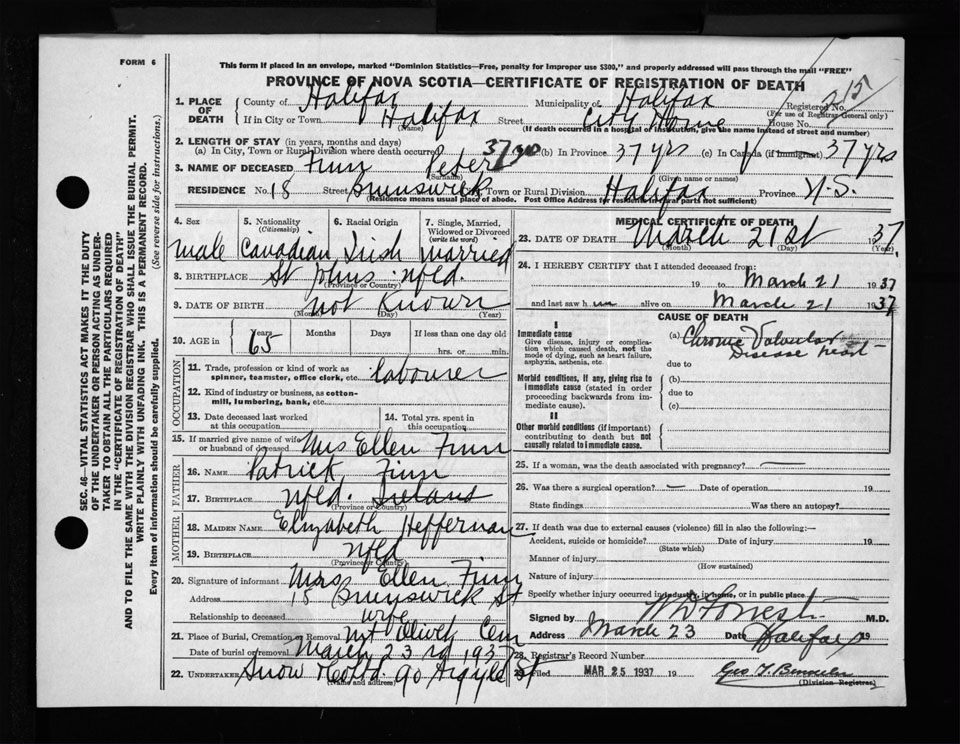 FORM 6
This form if placed in an envelope, marked "Dominion Statistics—Free, penalty for improper use $300," and properly addressed will pass through the mail "FREE"
PROVINCE OF NOVA SCOTIA—CERTIFICATE OF REGISTRATION OF DEATH
1. PLACE OF DEATH County of Halifax Municipality of Halifax Registered No.
(For use of Registrar General only)
If in City or Town Halifax Street City Home House No.
(Name) (If death occurred in a hospital or institution, give the name instead of street and number)
2. LENGTH OF STAY (in years, months and days)
(a) In City, Town or Rural Division where death occurred 37 yrs (b) In Province 37 yrs (c) In Canada (if immigrant) 37 yrs
3. NAME OF DECEASED Finn Peter
(Surname) (Given name or names)
RESIDENCE No. 18 Street Brunswick Town or Rural Division Halifax Province N.S.
(Residence means usual place of abode. Post Office Address for residents in rural parts not sufficient)
4. Sex 5. Nationality (Citizenship) 6. Racial Origin 7. Single, Married, Widowed or Divorced (write the word)
male Canadian Irish married
8. BIRTHPLACE St Johns Nfld.
(Province or Country)
9. DATE OF BIRTH not known
(Month) (Day) (Year)
10. AGE in Years Months Days If less than one day old
65 hrs. or min.
OCCUPATION
11. Trade, profession or kind of work as spinner, teamster, office clerk, etc. labourer
12. Kind of industry or business, as cotton-mill, lumbering, bank, etc.
13. Date deceased last worked at this occupation 14. Total yrs. spent in this occupation
15. If married give name of wife or husband of deceased Mrs Ellen Finn
FATHER
16. NAME Patrick Finn
17. BIRTHPLACE Nfld. Ireland
(Province or Country)
MOTHER
18. MAIDEN NAME Elizabeth Heffernan
19. BIRTHPLACE Nfld
(Province or Country)
20. Signature of informant Mrs Ellen Finn
Address 18 Brunswick St
Relationship to deceased wife
21. Place of Burial, Cremation or Removal Mt Olivet Cem
Date of burial or removal March 23rd 1937
22. UNDERTAKER Snow & Co Ltd. 90 Argyle St
(Name and address)
MEDICAL CERTIFICATE OF DEATH
23. DATE OF DEATH March 21st 1937
(Month) (Day) (Year)
24. I HEREBY CERTIFY that I attended deceased from
19 to March 21 1937
and last saw him alive on March 21 1937
CAUSE OF DEATH
I
Immediate cause
Give disease, injury or complication which caused death, not the mode of dying, such as heart failure, asphyxia, asthenia, etc.
(a) Chronic Valvular
Disease heart
due to
Morbid conditions, if any, giving rise to immediate cause (stated in order proceeding backwards from immediate cause).
(b)
due to
(c)
II
Other morbid conditions (if important) contributing to death but not causally related to immediate cause.
25. If a woman, was the death associated with pregnancy? —
26. Was there a surgical operation? — Date of operation 19
State findings Was there an autopsy?
27. If death was due to external causes (violence) fill in also the following:—
Accident, suicide or homicide? Date of injury 19
(State which)
Manner of injury
(How sustained)
Nature of injury
Specify whether injury occurred in industry, in home, or in public place
Signed by W D Forrest M.D.
Address March 23 Date Halifax 19
28. Registrar's Record Number
29. Filed MAR 25 1937 19
(Division Registrar)
SEC. 46—VITAL STATISTICS ACT MAKES IT THE DUTY
OF THE UNDERTAKER OR PERSON ACTING AS UNDER-
TAKER TO OBTAIN ALL THE PARTICULARS REQUIRED
IN THE "CERTIFICATE OF REGISTRATION OF DEATH"
AND TO FILE THE SAME WITH THE DIVISION REGISTRAR WHO SHALL ISSUE THE BURIAL PERMIT.
WRITE PLAINLY WITH UNFADING INK. THIS IS A PERMANENT RECORD.
Every item of information should be carefully supplied. (See reverse side for instructions.)